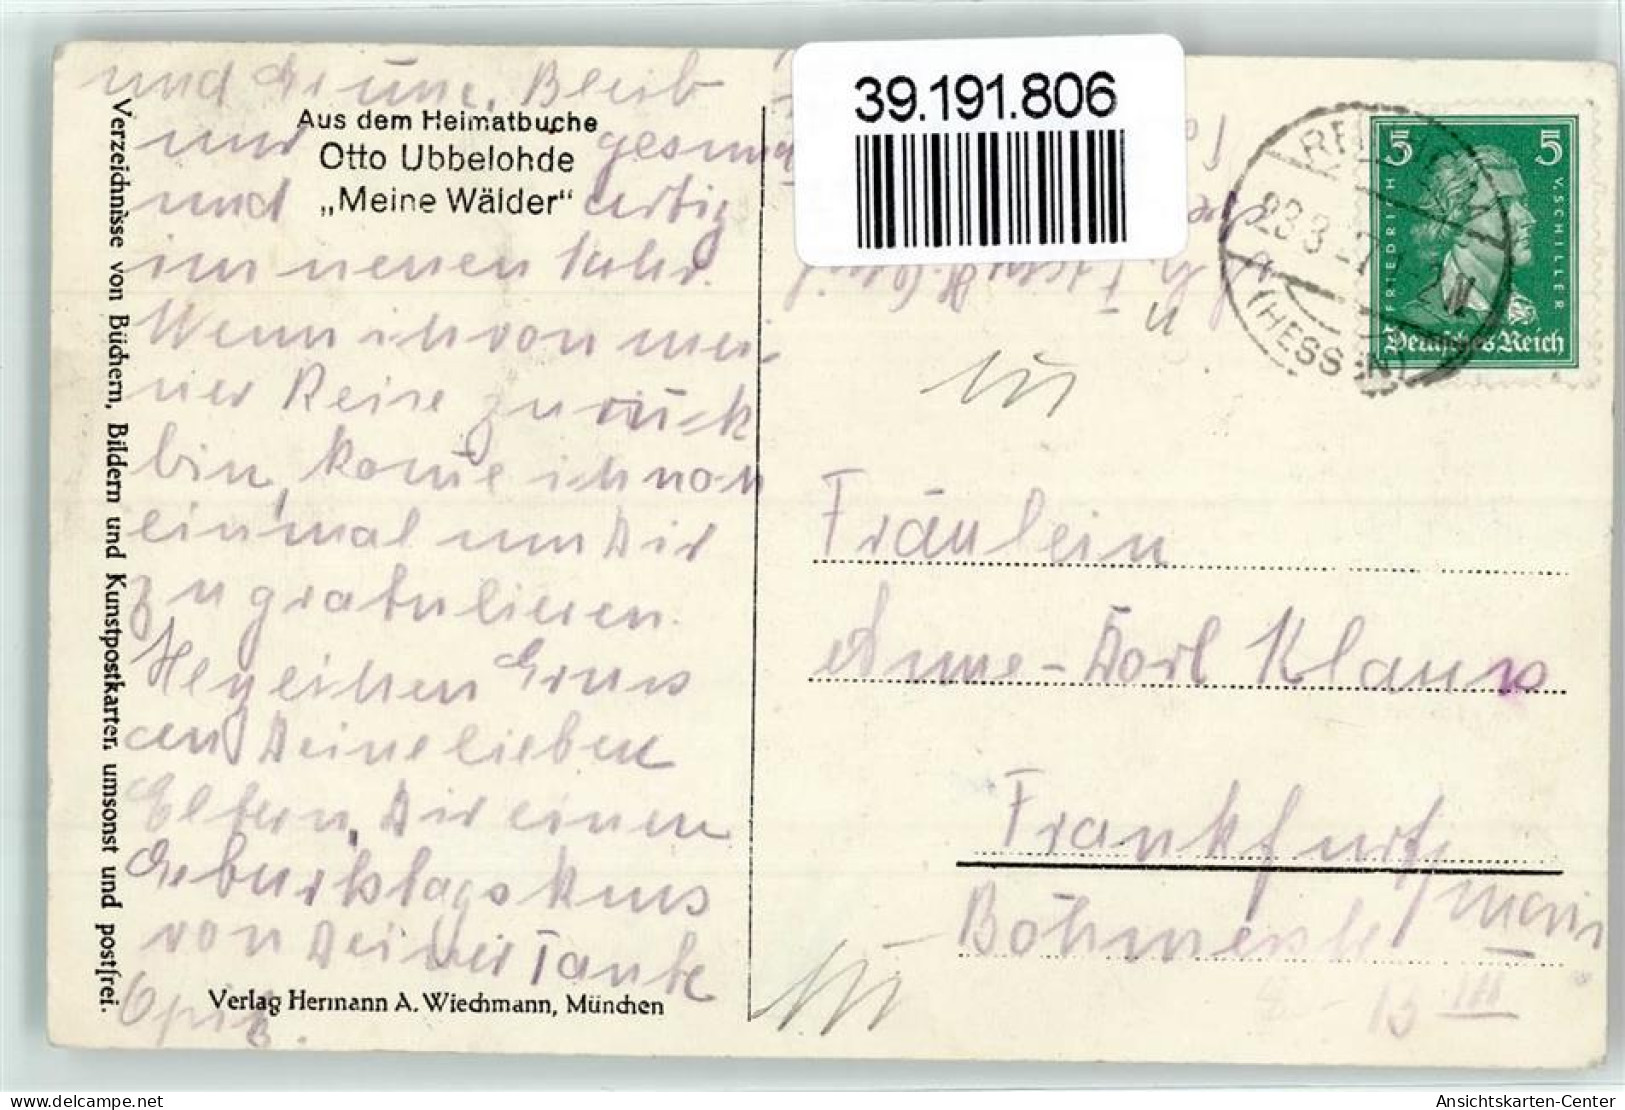 und Grüne. Bleib
nur gesund
und artig
im neuen Jahr.
Wenn ich von mei-
ner Reise zurück
bin, kome ich noch
einmal um Dir
zu gratulieren.
Herzlichen Gruss
an Deine lieben
Eltern, Dir einen
Geburtstagskuss
von Deiner Tante
Aus dem Heimatbuche
Otto Ubbelohde
„Meine Wälder“
Verzeichnisse von Büchern, Bildern und Kunstpostkarten umsonst und postfrei.
Verlag Hermann A. Wiechmann, München
39.191.806
5 5
FRIEDRICH V. SCHILLER
Deutsches Reich
(HESSEN)
Fräulein
Anne-Dorl Klaus
Frankfurt
Main
Böhmerstr
13 III
www.delcampe.net
Ansichtskarten-Center